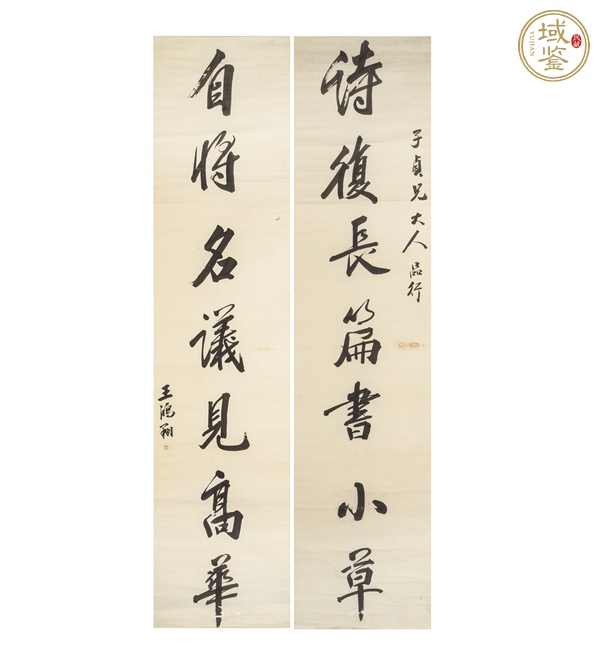 子貞兄大人品行
詩復長篇書小草
自將名議見高華
王鴻翔
域鑒
YUJIAN